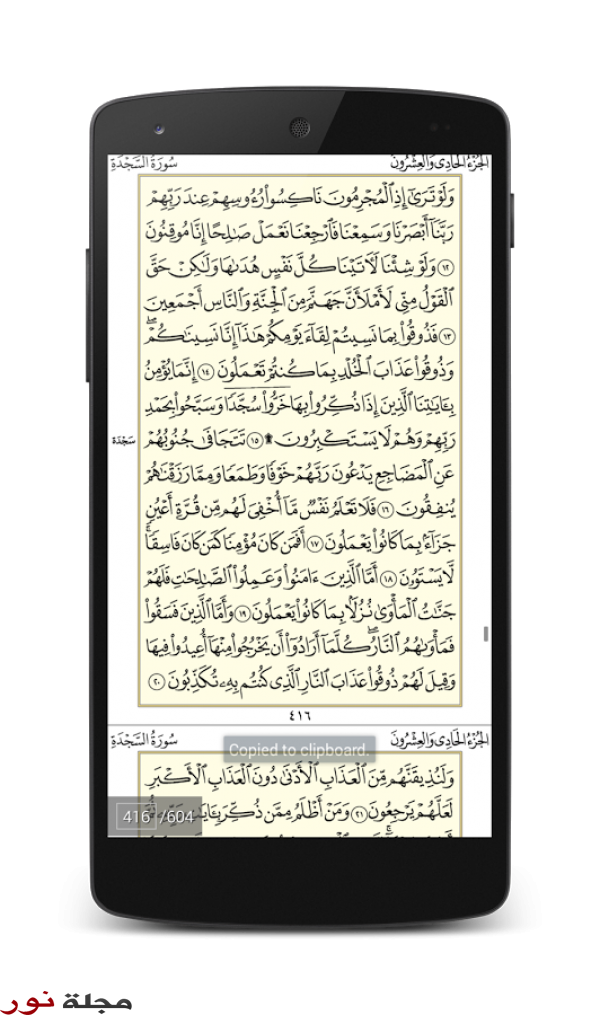 الجُزْءُ الحَادِى وَالعِشْرُونَ سُورَةُ السَّجْدَةِ
وَلَوْ تَرَىٰٓ إِذِ ٱلْمُجْرِمُونَ نَاكِسُوا۟ رُءُوسِهِمْ عِندَ رَبِّهِمْ
رَبَّنَآ أَبْصَرْنَا وَسَمِعْنَا فَٱرْجِعْنَا نَعْمَلْ صَـٰلِحًا إِنَّا مُوقِنُونَ
١٢ وَلَوْ شِئْنَا لَـَٔاتَيْنَا كُلَّ نَفْسٍ هُدَىٰهَا وَلَـٰكِنْ حَقَّ
ٱلْقَوْلُ مِنِّى لَأَمْلَأَنَّ جَهَنَّمَ مِنَ ٱلْجِنَّةِ وَٱلنَّاسِ أَجْمَعِينَ
١٣ فَذُوقُوا۟ بِمَا نَسِيتُمْ لِقَآءَ يَوْمِكُمْ هَـٰذَآ إِنَّا نَسِينَـٰكُمْ ۖ
وَذُوقُوا۟ عَذَابَ ٱلْخُلْدِ بِمَا كُنتُمْ تَعْمَلُونَ ١٤ إِنَّمَا يُؤْمِنُ
بِـَٔايَـٰتِنَا ٱلَّذِينَ إِذَا ذُكِّرُوا۟ بِهَا خَرُّوا۟ سُجَّدًا وَسَبَّحُوا۟ بِحَمْدِ
رَبِّهِمْ وَهُمْ لَا يَسْتَكْبِرُونَ ۩ ١٥ تَتَجَافَىٰ جُنُوبُهُمْ
سَجْدَة
عَنِ ٱلْمَضَاجِعِ يَدْعُونَ رَبَّهُمْ خَوْفًا وَطَمَعًا وَمِمَّا رَزَقْنَـٰهُمْ
يُنفِقُونَ ١٦ فَلَا تَعْلَمُ نَفْسٌ مَّآ أُخْفِىَ لَهُم مِّن قُرَّةِ أَعْيُنٍ
جَزَآءًۢ بِمَا كَانُوا۟ يَعْمَلُونَ ١٧ أَفَمَن كَانَ مُؤْمِنًا كَمَن كَانَ فَاسِقًا ۚ
لَّا يَسْتَوُۥنَ ١٨ أَمَّا ٱلَّذِينَ ءَامَنُوا۟ وَعَمِلُوا۟ ٱلصَّـٰلِحَـٰتِ فَلَهُمْ
جَنَّـٰتُ ٱلْمَأْوَىٰ نُزُلًۢا بِمَا كَانُوا۟ يَعْمَلُونَ ١٩ وَأَمَّا ٱلَّذِينَ فَسَقُوا۟
فَمَأْوَىٰهُمُ ٱلنَّارُ ۖ كُلَّمَآ أَرَادُوٓا۟ أَن يَخْرُجُوا۟ مِنْهَآ أُعِيدُوا۟ فِيهَا
وَقِيلَ لَهُمْ ذُوقُوا۟ عَذَابَ ٱلنَّارِ ٱلَّذِى كُنتُم بِهِۦ تُكَذِّبُونَ ٢٠
٤١٦
الجُزْءُ الحَادِى وَالعِشْرُونَ سُورَةُ السَّجْدَةِ
Copied to clipboard.
وَلَنُذِيقَنَّهُم مِّنَ ٱلْعَذَابِ ٱلْأَدْنَىٰ دُونَ ٱلْعَذَابِ ٱلْأَكْبَرِ
لَعَلَّهُمْ يَرْجِعُونَ ٢١ وَمَنْ أَظْلَمُ مِمَّن ذُكِّرَ بِـَٔايَـٰتِ
416 /604
مجلة نور